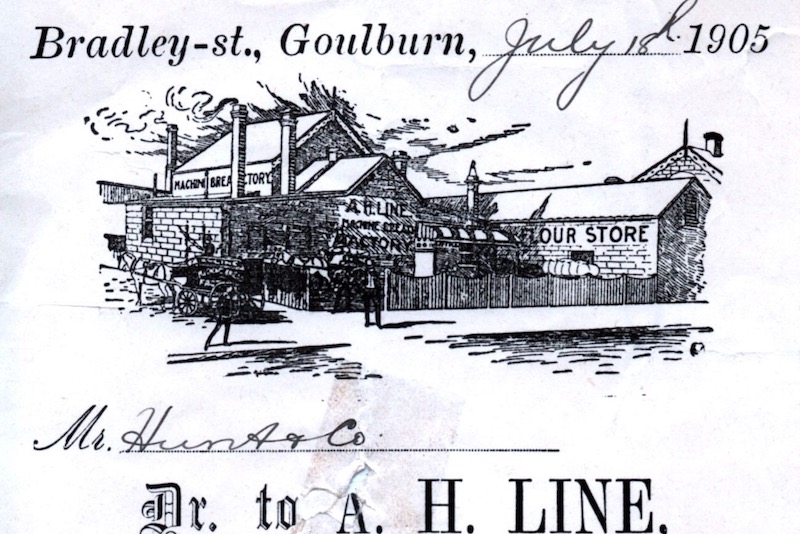 Bradley-st., Goulburn, July 18th 1905
MACHINE BREAD FACTORY
A. H. LINE
MACHINE BREAD
FACTORY
FLOUR STORE
Mr. Hunt & Co.
Dr. to A. H. LINE,